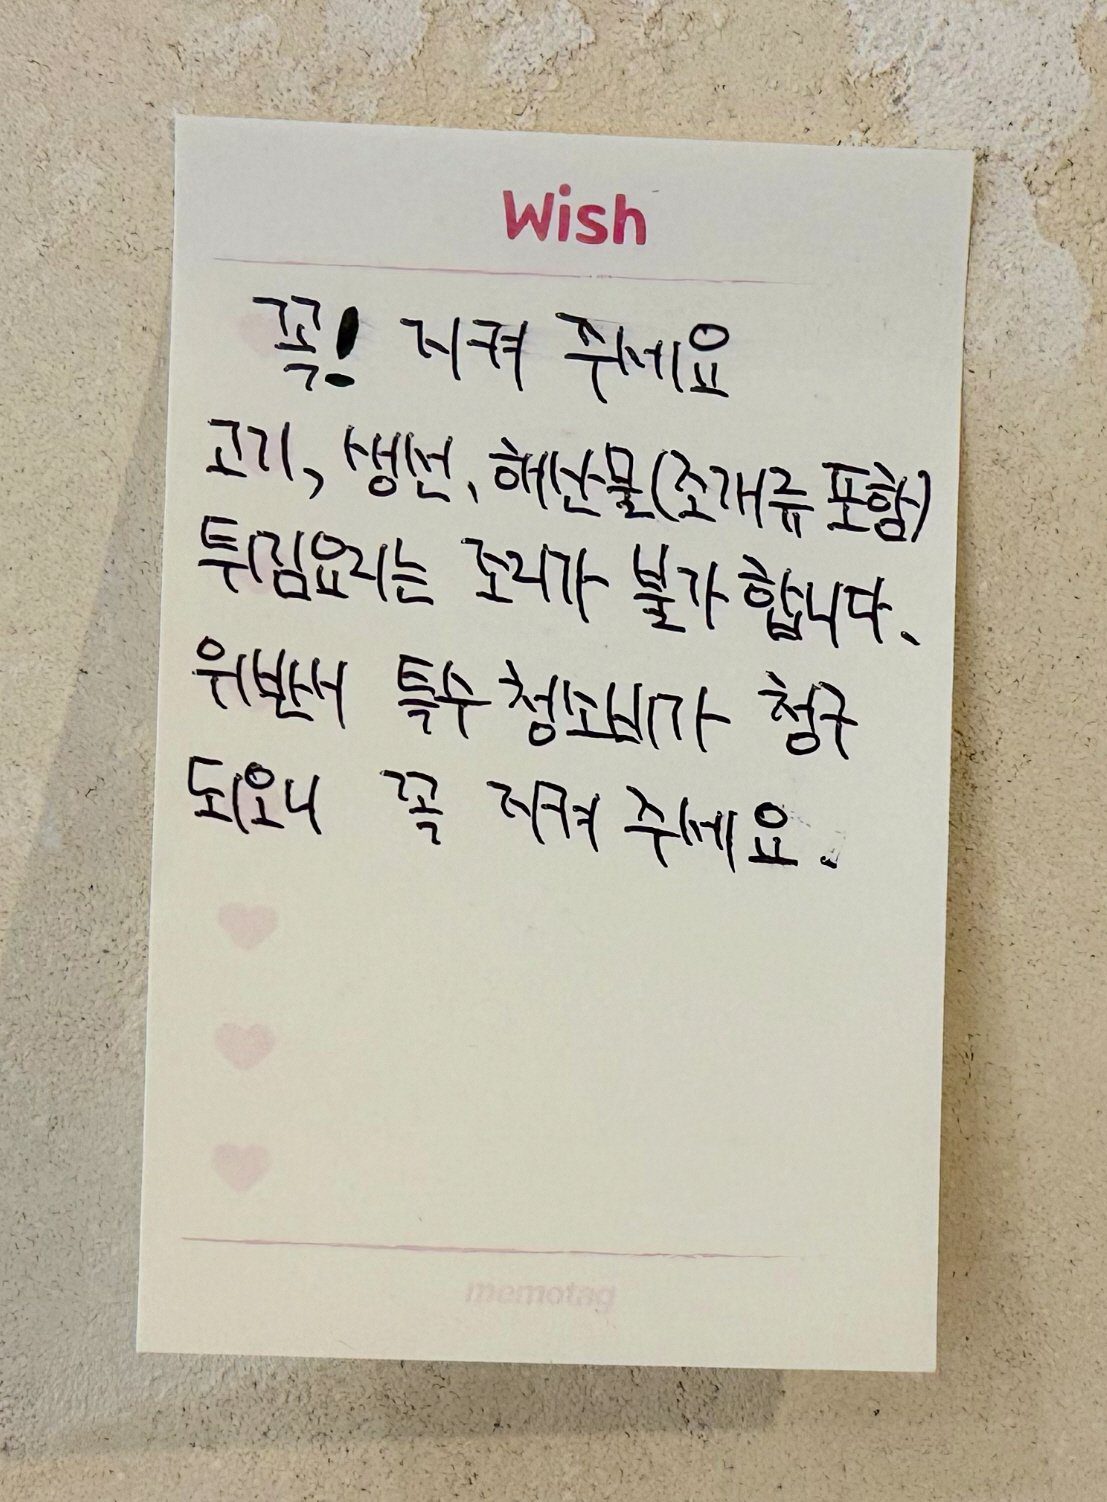 Wish
꼭! 지켜 주세요
고기, 생선, 해산물(조개류 포함)
튀김요리는 조리가 불가합니다.
위반시 특수청소비가 청구
되오니 꼭 지켜 주세요.
memotag